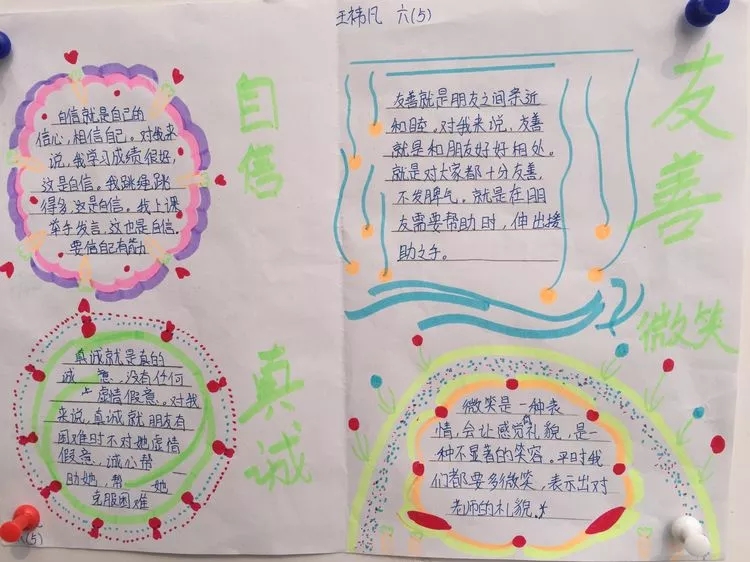 王祎凡 六(5)
自信
自信就是自己的
信心,相信自己。对我来
说,我学习成绩很好,
这是自信。我跳绳跳
得多,这是自信。我上课
举手发言,这也是自信。
要信自己有能力
友善
友善就是朋友之间亲近
和睦。对我来说,友善
就是和朋友好好相处。
就是对大家都十分友善,
不发脾气。就是在朋
友需要帮助时,伸出援
助之手。
真诚
真诚就是真的
诚意,没有任何
虚情假意。对我
来说,真诚就朋友有
困难时不对她虚情
假意,诚心帮
助她,帮她
克服困难
微笑
微笑是一种表
情,会让感觉礼貌,是一
种不显著的笑容。平时我
们都要多微笑,表示出对
老师的礼貌.
(5)